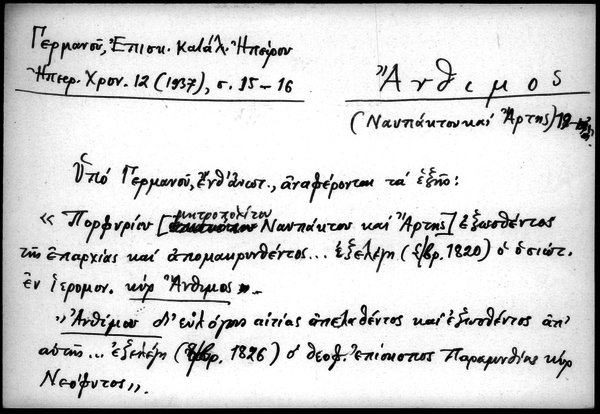 Γερμανοῦ, Ἐπισκ. Κατάλ. Ἠπείρου
Ἠπειρ. Χρον. 12 (1937), σ. 15–16
Ἄνθιμος
(Ναυπάκτου καί Ἄρτης)
Ὑπό Γερμανοῦ, ἔνθ' ἀνωτ., ἀναφέρονται τά ἑξῆς:
« Πορφυρίου [μητροπολίτου Ναυπάκτου καί Ἄρτης] ἐξωσθέντος
τῆς ἐπαρχίας καί ἀπομακρυνθέντος... ἐξελέγη (1820) ὁ ὁσιώτ.
ἐν ἱερομον. κύρ Ἄνθιμος ».–
» Ἀνθίμου δι' εὐλόγους αἰτίας ἀπελαθέντος καί ἐξωσθέντος ἀπ'
αὐτῆς... ἐξελέγη (1826) ὁ θεοφ. ἐπίσκοπος Παραμυθίας κύρ
Νεόφυτος ».